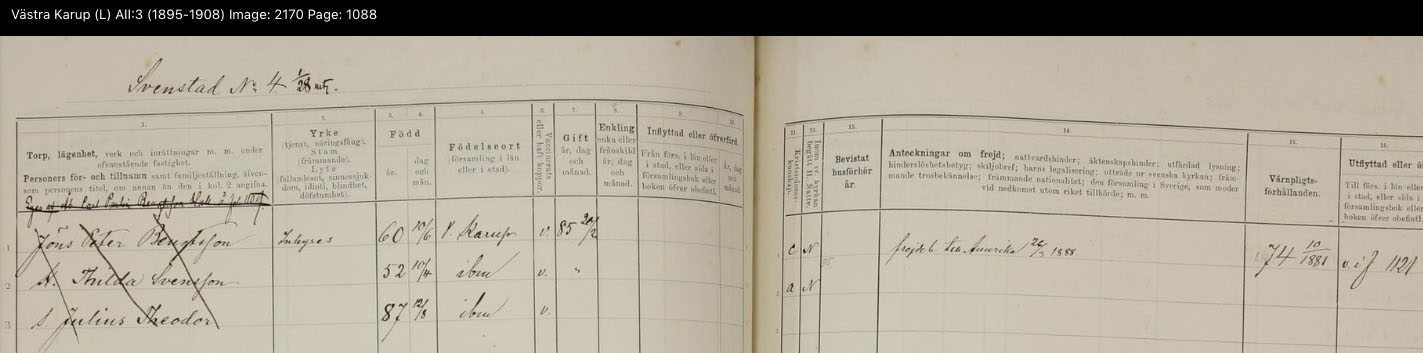 Västra Karup (L) AII:3 (1895-1908) Image: 2170 Page: 1088
Svenstad № 4 1/28 mtl.
1. 2. 3. 4. 5. 6. 7. 8. 9. 10.
Torp, lägenhet, verk och inrättningar m. m. under
ofvanstående fastighet.
Personers för- och tillnamn samt familjeställning, äfven-
som personens titel, om annan än den i kol. 2 angifna.
Yrke
(tjenst, näringsfång).
Stam
(främmande).
Lyte
(fallandesot, sinnessjuk-
dom, idioti, blindhet,
döfstumhet).
Född
år.
dag
och
mån.
Födelseort
(församling i län
eller i stad).
Vaccinerats
eller haft koppor.
Gift
år, dag
och
månad.
Enkling
enka eller
frånskild
år, dag
och
månad.
Inflyttad eller öfverförd.
Från förs. i län eller
i stad, eller sida i
församlingsbok eller
boken öfver obefintl.
År, dag
och
månad.
11. 12. 13. 14. 15. 16.
Kristendoms-
kunskap.
Inom sv. kyrkan
begått H. Nattv.
Bevistat
husförhör
år.
Anteckningar om frejd; nattvardshinder; äktenskapshinder; utfärdad lysning;
hinderslöshetsbetyg; skiljobref; barns legalisering; utträde ur svenska kyrkan; främ-
mande trosbekännelse; främmande nationalitet; den församling i Sverige, som moder
vid nedkomst utom riket tillhörde; m. m.
Värnpligts-
förhållanden.
Utflyttad eller ö
Till förs. i län eller
i stad, eller sida
församlingsbok eller
boken öfver obefintl.
1 Jöns Peter Bengtsson Inhyses 60 10/6 V. Karup v. 85 20/2 1 C N frejdeb. till Amerika 1888 74 10/1881 v. i f 1121
2 H. Thilda Svensson 52 10/4 ibm v. " 2 a N
3 S. Julius Theodor 87 12/8 ibm v.